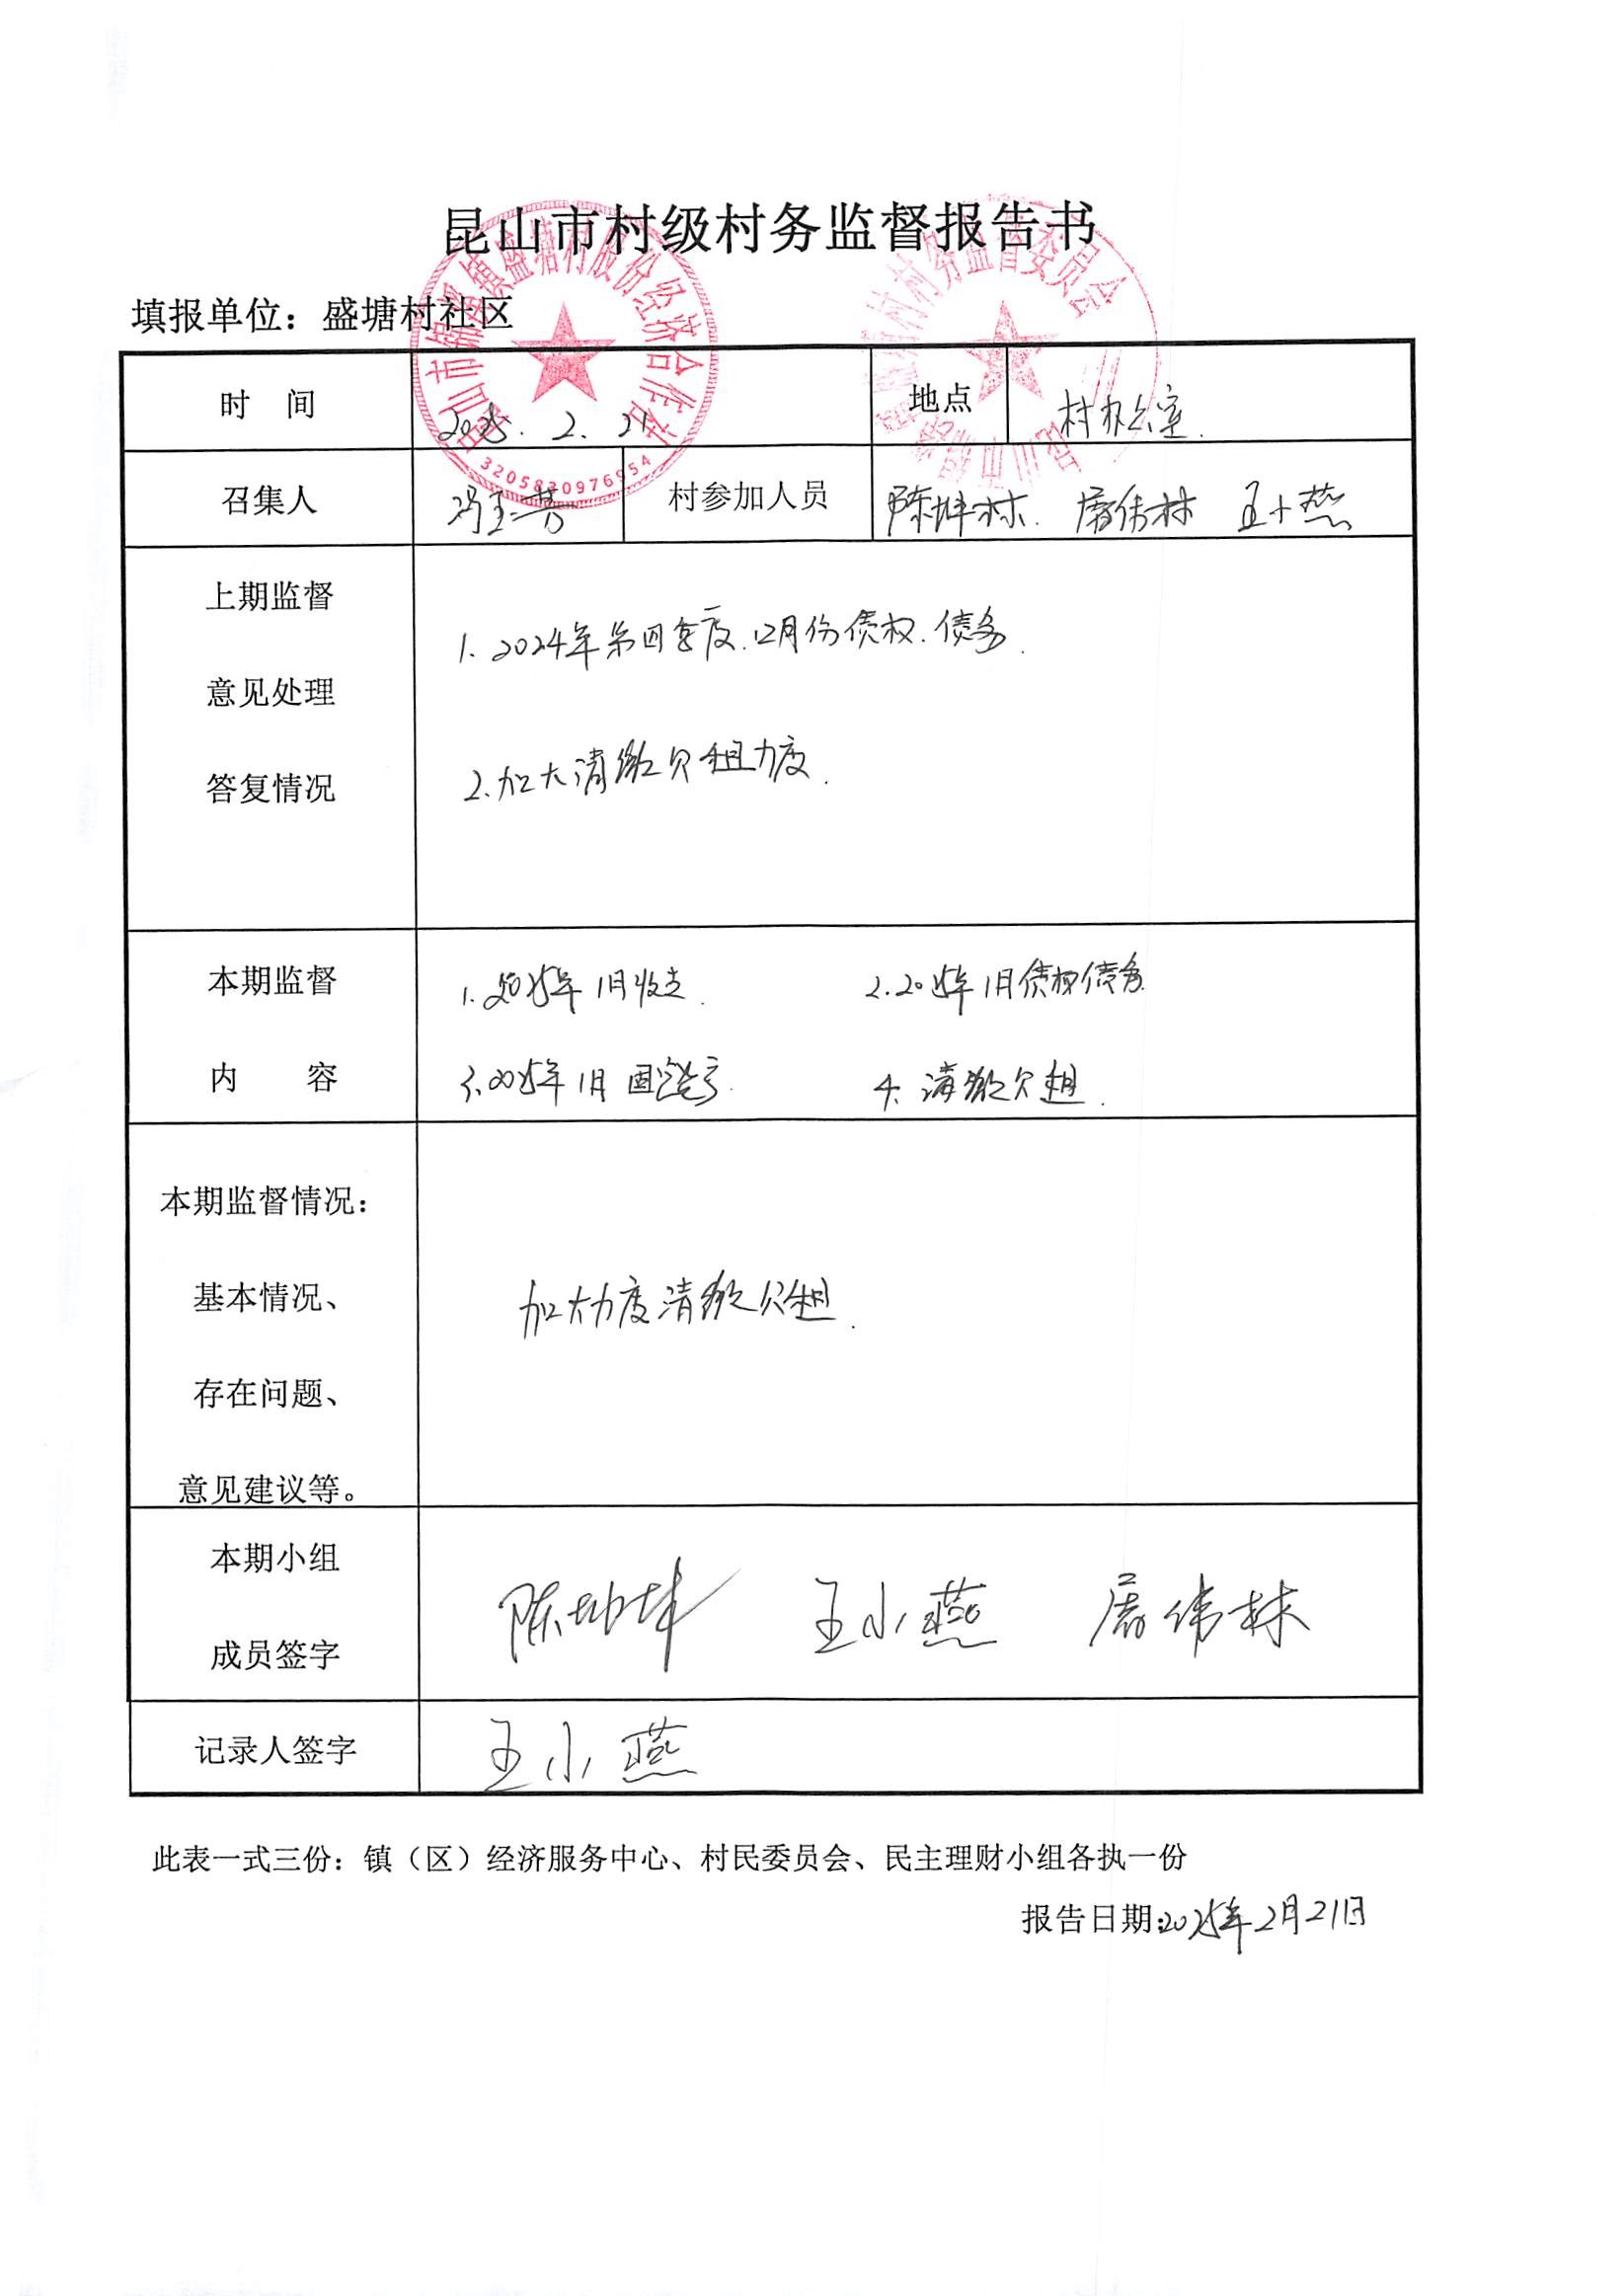 昆山市村级村务监督报告书
填报单位：盛塘村社区
时 间 2025.2.21 地点 村办公室.
召集人 村参加人员 陈坤林. 屠伟林 王小燕
上期监督
意见处理
答复情况
1. 2024年第四季度.12月份债权.债务.
2.加大清缴欠租力度.
本期监督
内 容
1.2025年1月收支. 2.2025年1月债权债务
3.2025年1月 4.清缴欠租.
本期监督情况：
基本情况、
存在问题、
意见建议等。
加大力度清缴欠租.
本期小组
成员签字
王小燕 屠伟林
记录人签字 王小燕
此表一式三份：镇（区）经济服务中心、村民委员会、民主理财小组各执一份
报告日期:2025年2月21日
昆山市锦溪镇盛塘村股份经济合作社
村务监督委员会